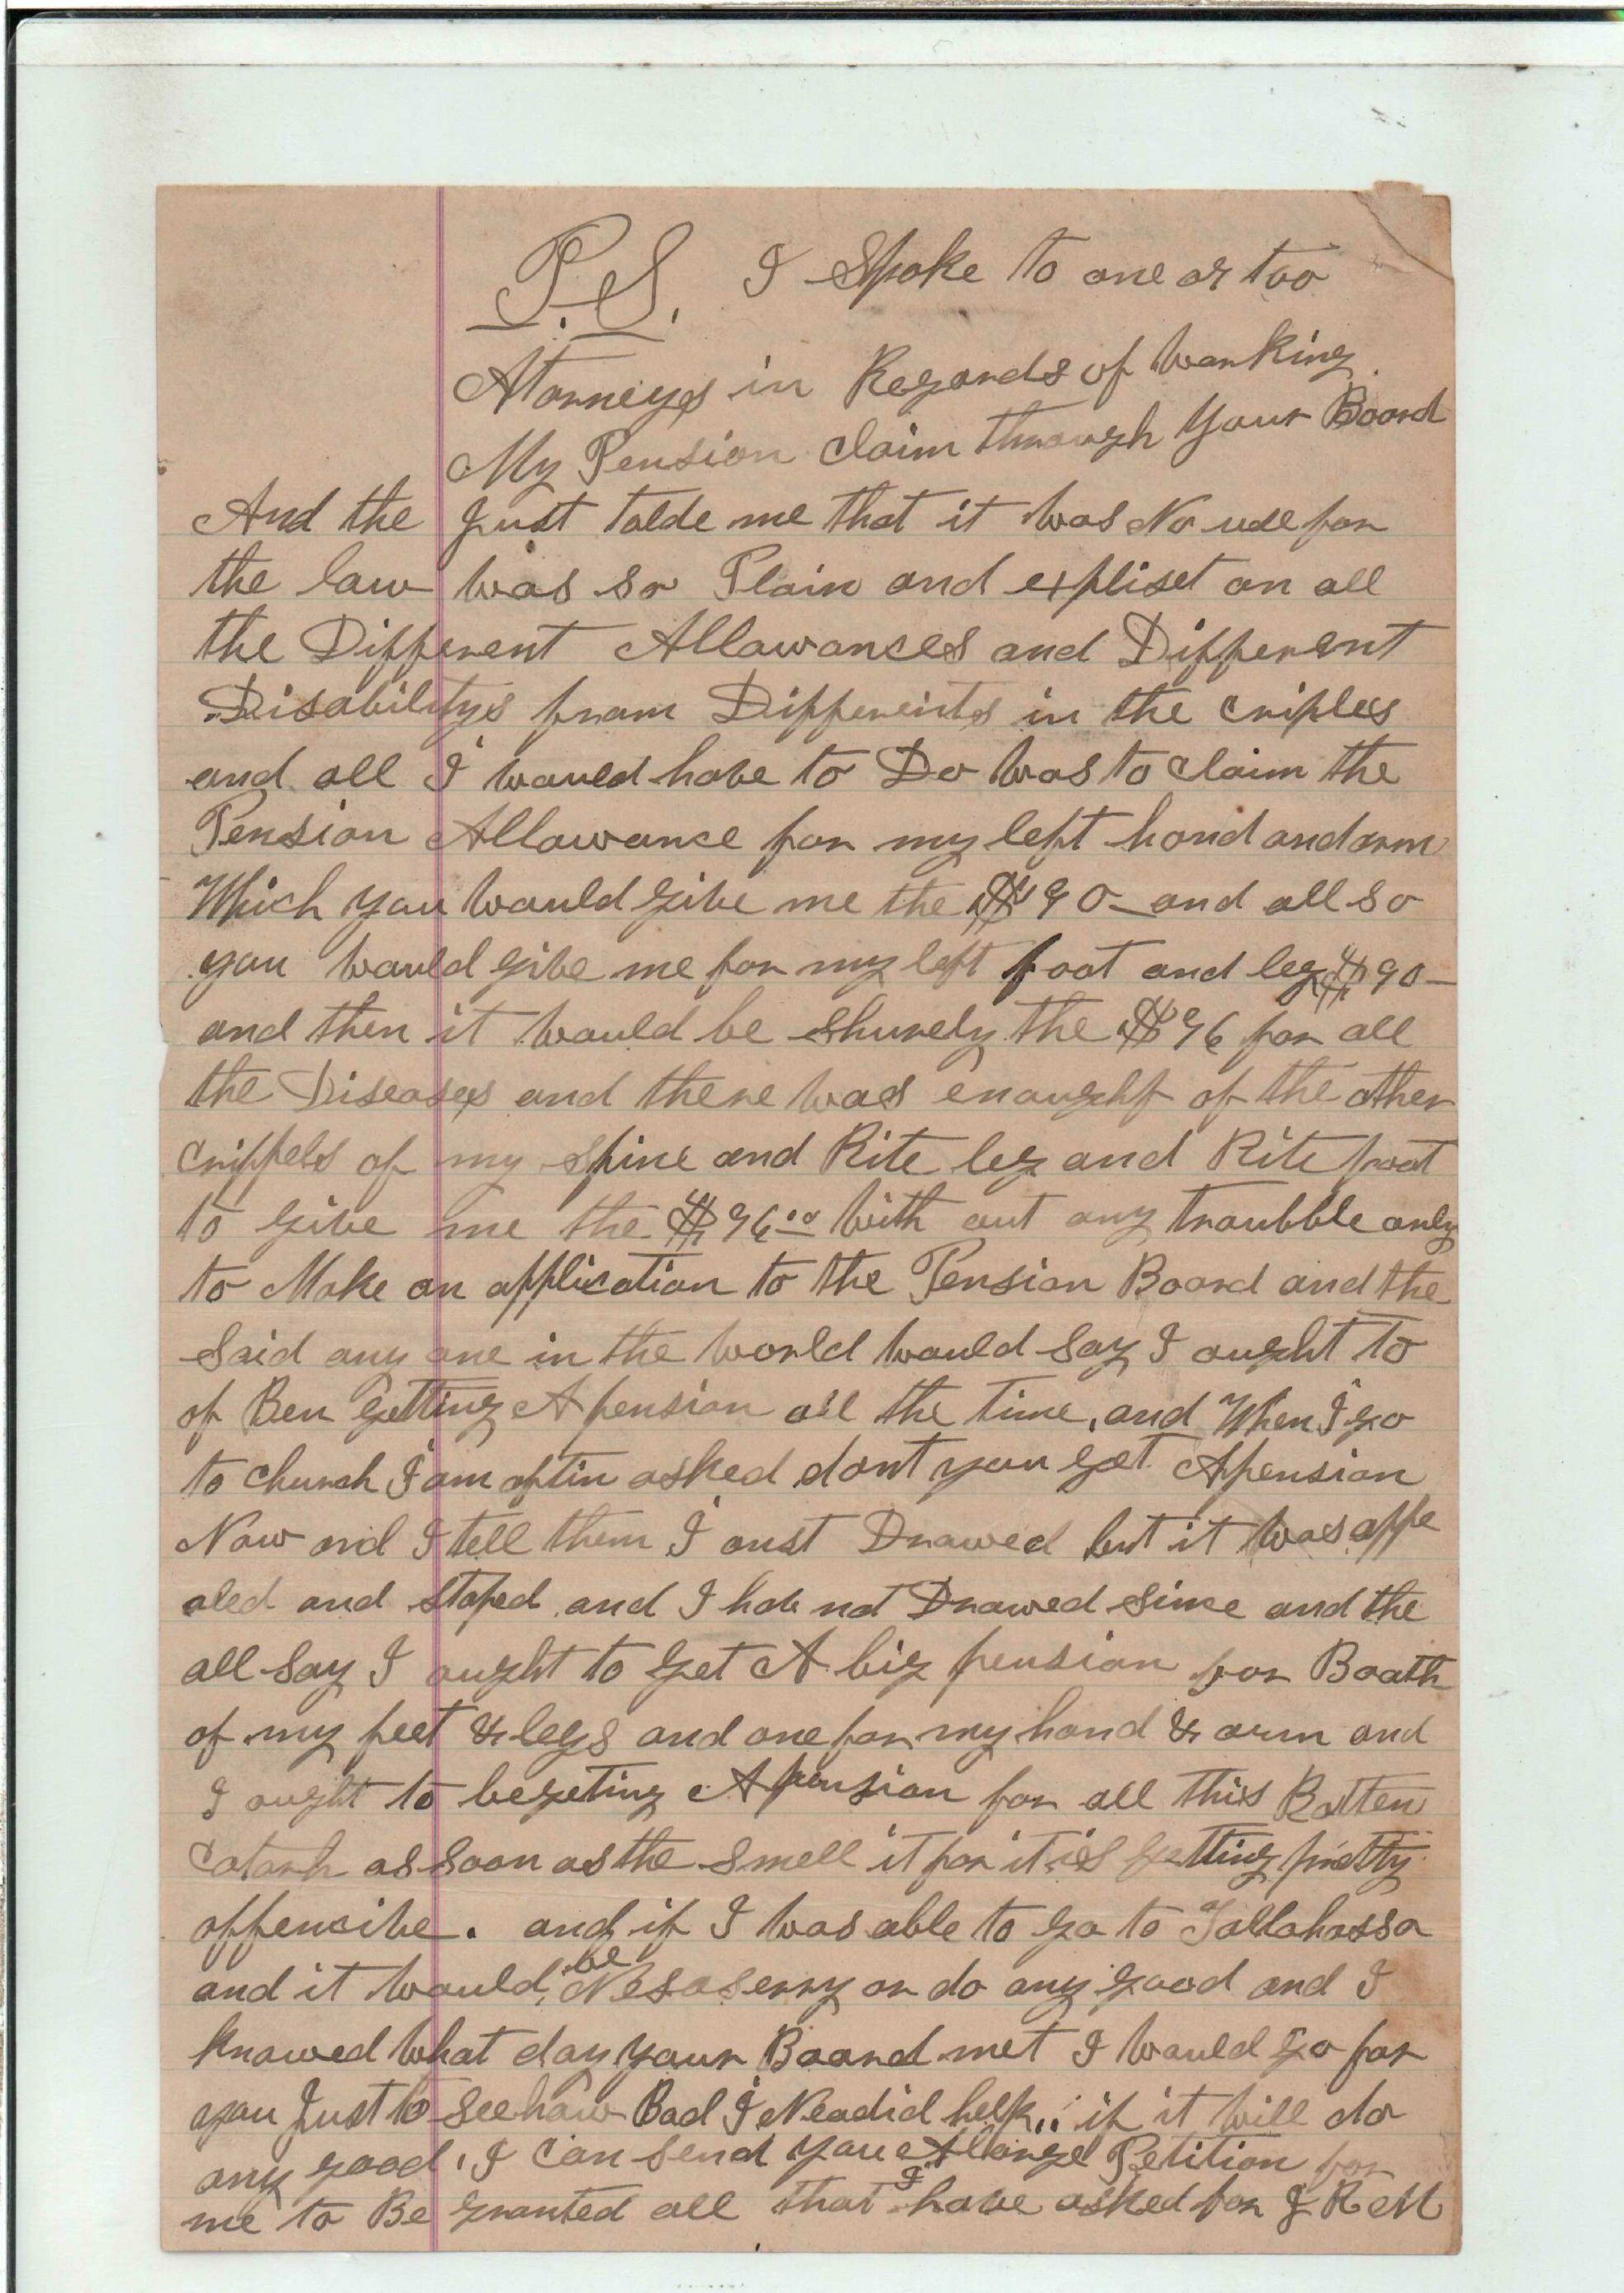 P.S. I Spoke to one or too
Atorneys in Regards of working
My Pension claim through your Board
And the Just tolde me that it was No use for
the law was so Plain and expliset on all
the Different Allowances and Different
Disabilitys from Differents in the criples
and all I would have to Do was to claim the
Pension Allowance for my left hand and arm
Which you would give me the $90– and all so
you would give me for my left foot and leg $90–
and then it would be shurely the $96 for all
the Diseases and there was enought of the other
crippels of my spine and Rite leg and Rite foot
to give me the $96.00 with out any troubble only
to Make an application to the Pension Board and the
said any one in the world would say I ought to
of Ben getting A pension all the time, and When I go
to church I am oftin asked dont you get A pension
Now and I tell them I onst Drawed but it was appe
aled and stoped and I have not Drawed since and the
all say I ought to get A big pension for Boath
of my feet & legs and one for my hand & arm and
I ought to be geting A pension for all this Rotten
Catarh as soon as the smell it for it is getting pretty
offencive. and if I was able to go to Tallahassa
and it would be Nesaserry or do any good and I
knowed what day your Board met I would go for
you Just to see how Bad I Neadid help.. if it will do
any good, I can send you A large Petition for
me to Be granted all that I have asked for J R M